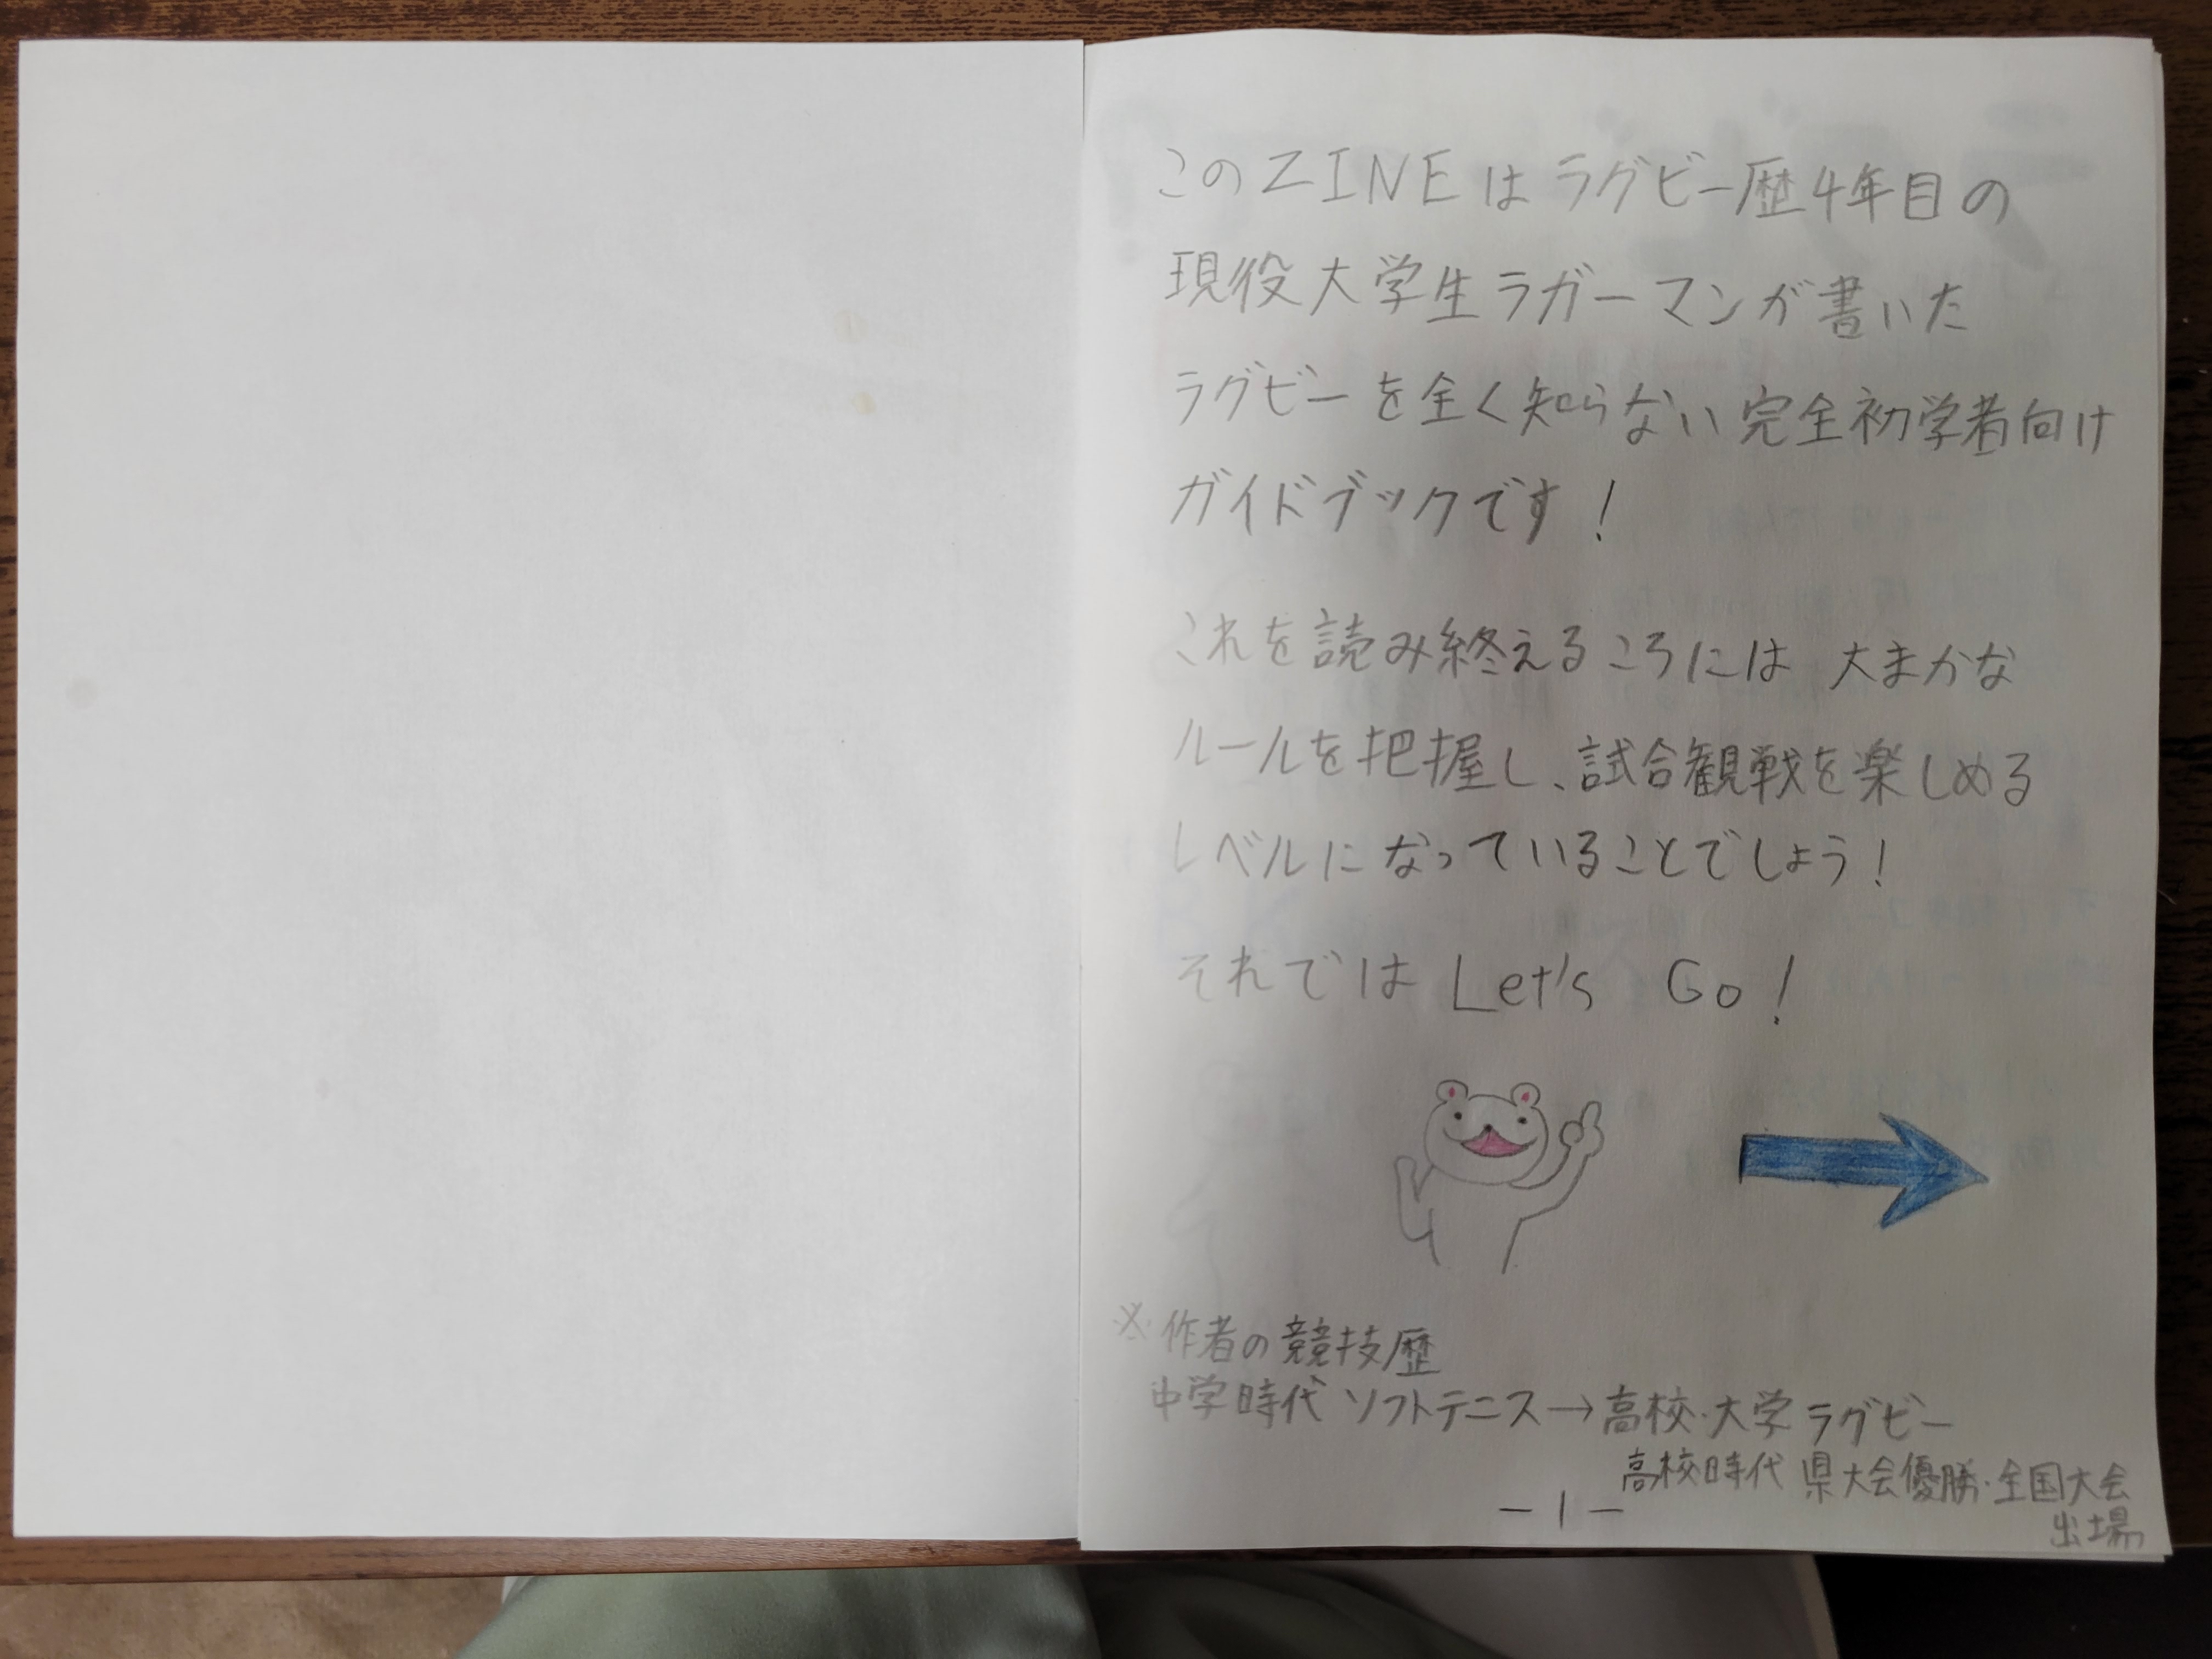 このZINEはラグビー歴4年目の
現役大学生ラガーマンが書いた
ラグビーを全く知らない完全初学者向け
ガイドブックです!
これを読み終えるころには 大まかな
ルールを把握し、試合観戦を楽しめる
レベルになっていることでしょう!
それでは Let's Go!
※作者の競技歴
中学時代 ソフトテニス→高校・大学 ラグビー
高校時代 県大会優勝・全国大会
出場
-1-